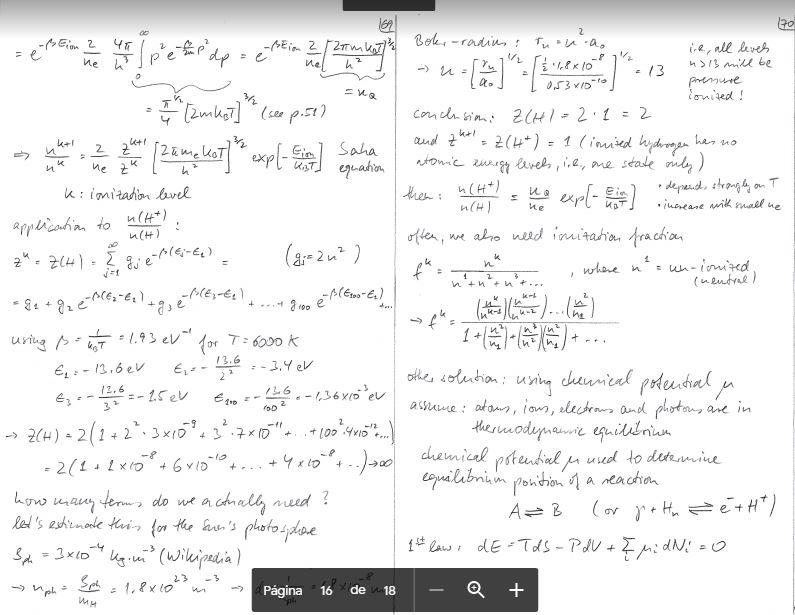 169
= e^{-βE_{ion}} \frac{2}{n_e} \frac{4π}{h^3} \int_0^∞ p^2 e^{-\frac{β}{2m}p^2} dp = e^{-βE_{ion}} \frac{2}{n_e} [\frac{2πmk_BT}{h^2}]^{3/2}
= \frac{π^{1/2}}{4} [2mk_BT]^{3/2} (see p.51) = n_Q
⇒ \frac{n^{k+1}}{n^k} = \frac{2}{n_e} \frac{z^{k+1}}{z^k} [\frac{2πm_ek_BT}{h^2}]^{3/2} exp[-\frac{E_{ion}}{k_BT}] Saha equation
k: ionization level
application to \frac{n(H^+)}{n(H)} :
z^k = z(H) = \sum_{j=1}^∞ g_j e^{-β(E_j-E_1)} = (g_j = 2n^2)
= g_1 + g_2 e^{-β(E_2-E_1)} + g_3 e^{-β(E_3-E_1)} + .... + g_{100} e^{-β(E_{100}-E_1)} ...
using β = \frac{1}{k_BT} = 1.93 eV^{-1} for T = 6000 K
E_1 = -13.6 eV E_2 = -\frac{13.6}{2^2} = -3.4 eV
E_3 = -\frac{13.6}{3^2} = -1.5 eV E_{100} = -\frac{13.6}{100^2} = -1.36×10^{-3} eV
→ z(H) = 2(1 + 2^2·3×10^{-9} + 3^2·7×10^{-11} + .. + 100^2·4×10^{-12} + ...)
= 2(1 + 1×10^{-8} + 6×10^{-10} + .... + 4×10^{-8} + ..) → ∞
how many terms do we actually need?
let's estimate this for the Sun's photosphere
ρ_{ph} = 3×10^{-4} kg·m^{-3} (Wikipedia)
→ n_{ph} = \frac{ρ_{ph}}{m_H} = 1.8×10^{23} m^{-3} →
170
Bohr-radius: r_n = n^2·a_0
→ n = [\frac{r_n}{a_0}]^{1/2} = [\frac{\frac{1}{2}·1.8×10^{-8}}{0.53×10^{-10}}]^{1/2} = 13
i.e., all levels
n>13 will be
pressure
ionized!
conclusion: z(H) = 2·1 = 2
and z^{k+1} = z(H^+) = 1 (ionized hydrogen has no
atomic energy levels, i.e., one state only)
then: \frac{n(H^+)}{n(H)} = \frac{n_Q}{n_e} exp[-\frac{E_{ion}}{k_BT}]
• depends strongly on T
• increase with small n_e
often, we also need ionization fraction
f^k = \frac{n^k}{n^1+n^2+n^3+...} , where n^1 = un-ionized
(neutral)
→ f^k = \frac{(\frac{n^k}{n^{k-1}})(\frac{n^{k-1}}{n^{k-2}})...(\frac{n^2}{n^1})}{1+(\frac{n^2}{n^1})+(\frac{n^3}{n^2})(\frac{n^2}{n^1})+...}
other solution: using chemical potential μ
assume: atoms, ions, electrons and photons are in
thermodynamic equilibrium
chemical potential μ used to determine
equilibrium position of a reaction
A ⇌ B (or γ + H_n ⇌ e^- + H^+)
1^{st} law: dE = TdS - PdV + \sum_i μ_i dN_i = 0
Página 16 de 18 − +